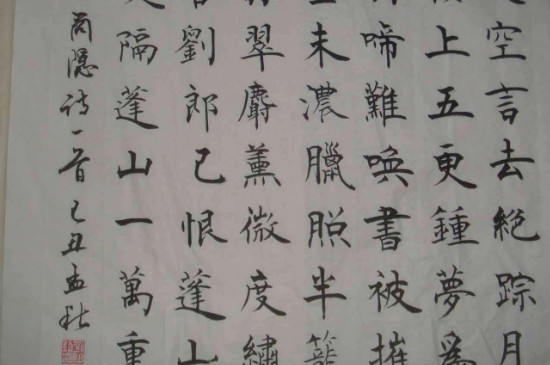 空言去絕踪月
上五更鍾夢爲
啼難唤書被摧
未濃臘照半籠
翠麝薰微度繡
劉郎已恨蓬山
隔蓬山一萬重
商隱詩一首己丑孟秋